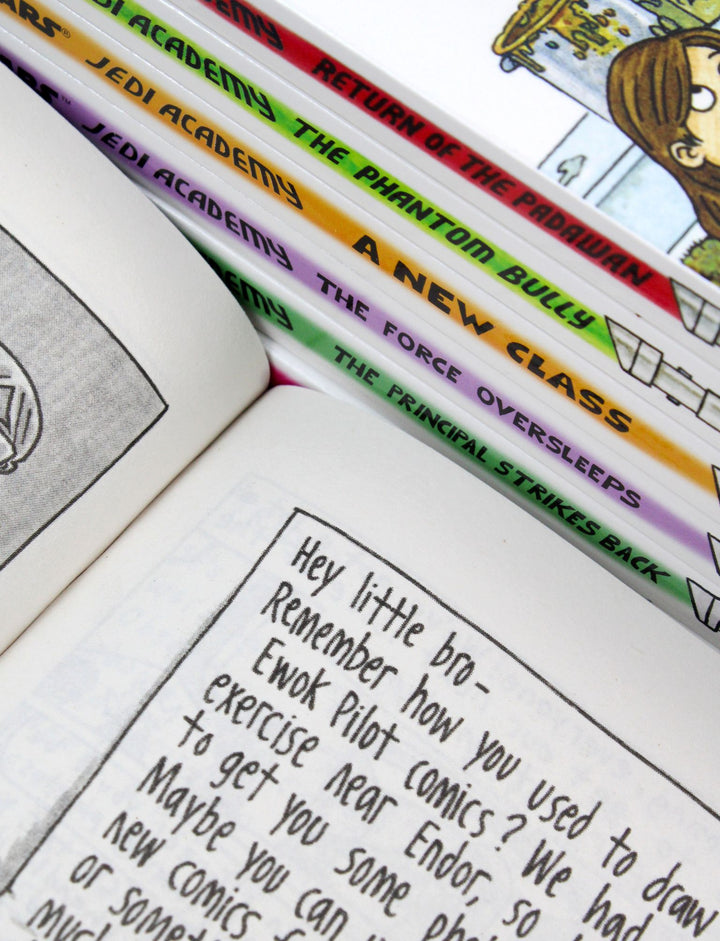 JEDI ACADEMY RETURN OF THE PADAWAN
JEDI ACADEMY THE PHANTOM BULLY
WARS® JEDI ACADEMY A NEW CLASS
WARS™ JEDI ACADEMY THE FORCE OVERSLEEPS
THE PRINCIPAL STRIKES BACK
Hey little bro-
Remember how you used to draw
Ewok Pilot comics? We had
exercise near Endor, so
to get you some
Maybe you can
new comics
or
much